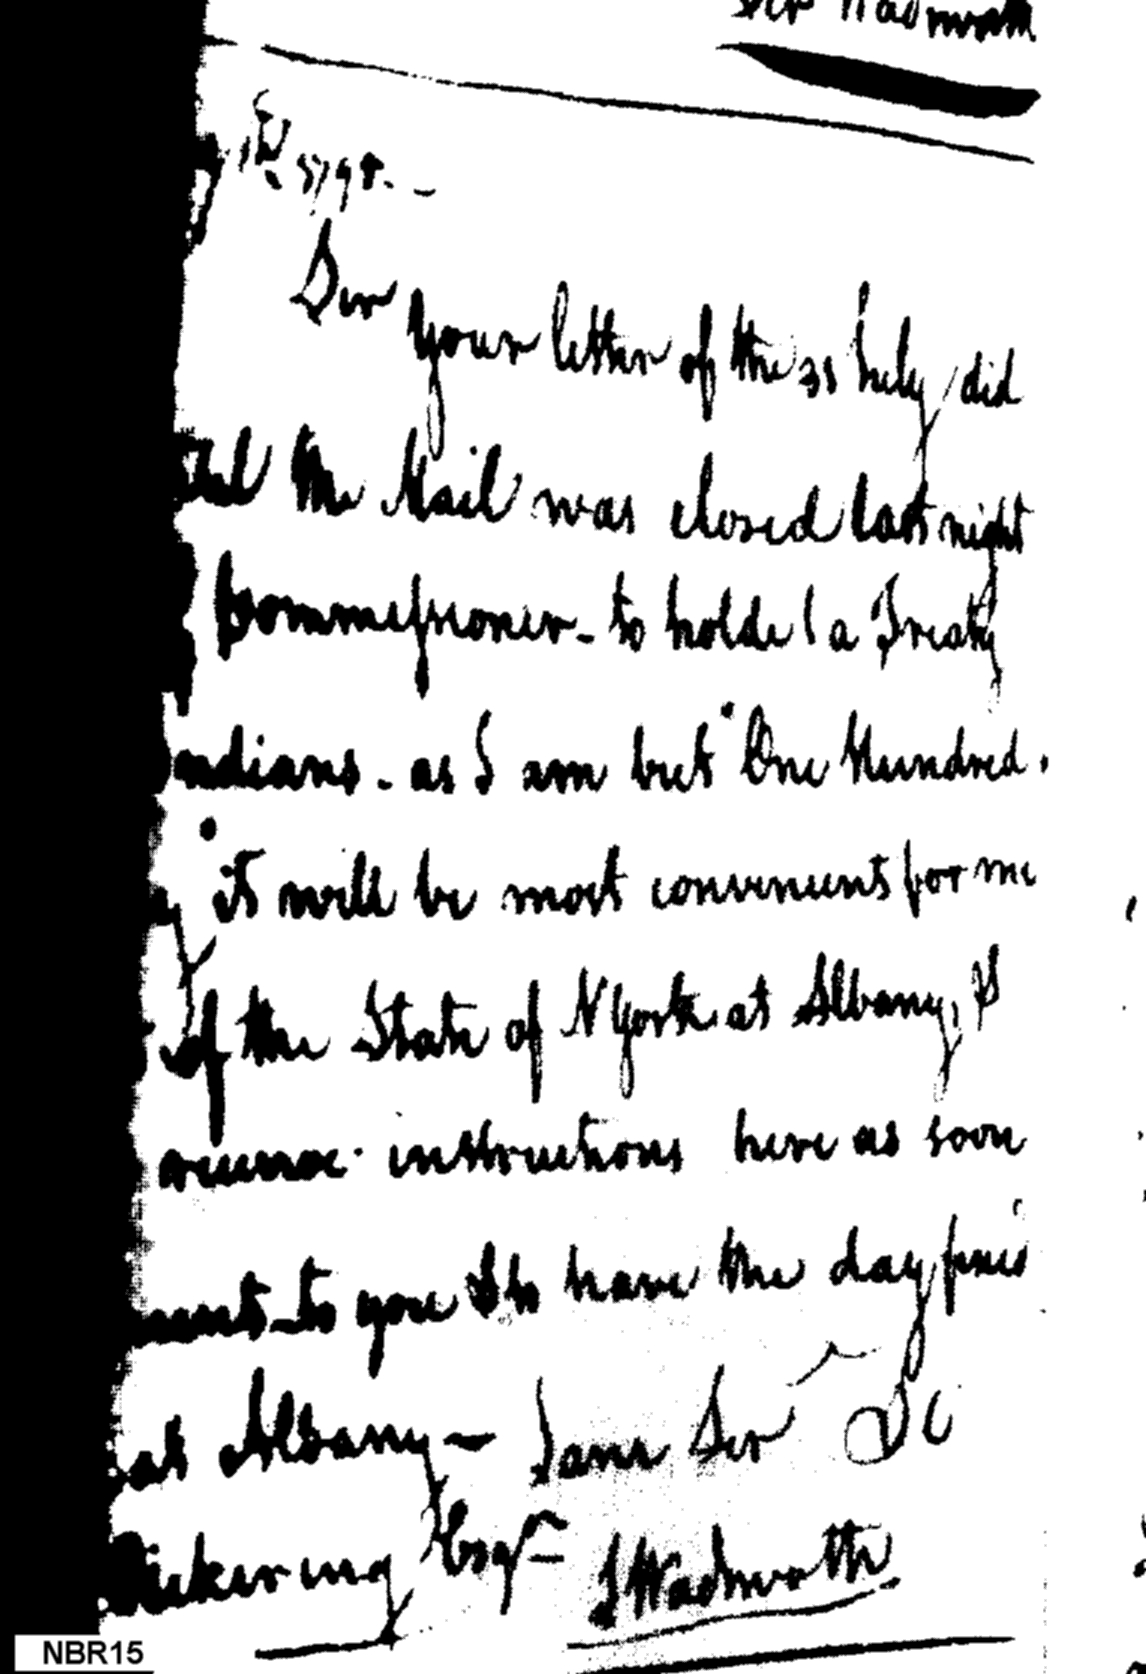 Wadsworth
1798. -
Sir your letter of the 31 July, did
the Mail was closed last night
Commissioner - to holde a Treaty
ndians - as I am but One Hundred.
it will be most convenient for me
of the State of N York at Albany, I
receive instructions here as soon
to you I to have the day fixed
at Albany - I am Sir
Pickering Esqr - J Wadsworth
NBR15